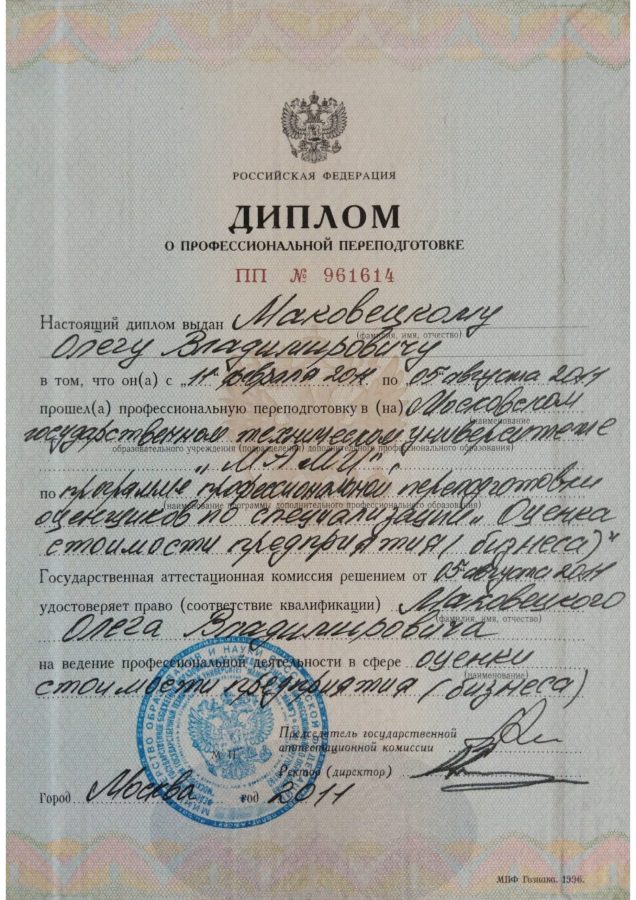 РОССИЙСКАЯ ФЕДЕРАЦИЯ
ДИПЛОМ
О ПРОФЕССИОНАЛЬНОЙ ПЕРЕПОДГОТОВКЕ
ПП № 961614
Настоящий диплом выдан Маковецкому
(фамилия, имя, отчество)
Олегу Владимировичу
в том, что он(а) с „11" февраля 2011 по 05 августа 2011
прошел(а) профессиональную переподготовку в (на) Московском
(наименование
государственном техническом университете
образовательного учреждения (подразделения) дополнительного профессионального образования)
„МАМИ",
по программе профессиональной переподготовки
(наименование программы дополнительного профессионального образования)
оценщиков по специализации „Оценка
стоимости предприятия (бизнеса)"
Государственная аттестационная комиссия решением от 05 августа 2011
удостоверяет право (соответствие квалификации) Маковецкого
(фамилия, имя, отчество)
Олега Владимировича
на ведение профессиональной деятельности в сфере оценки
(наименование)
стоимости предприятия (бизнеса)
Председатель государственной
аттестационной комиссии
М.П.
Ректор (директор)
Город Москва год 2011
МПФ Гознака. 1996.